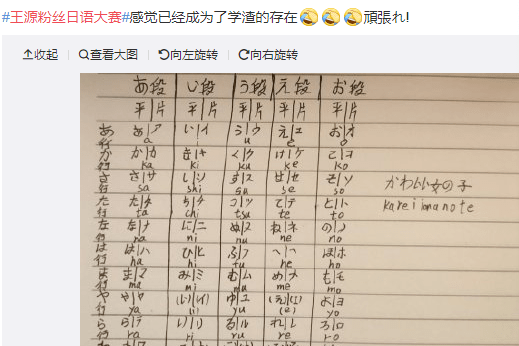 #王源粉丝日语大赛#感觉已经成为了学渣的存在🤣🤣🤣頑張れ!
收起 查看大图 向左旋转 向右旋转
あ段 い段 う段 え段 お段
平|片 平|片 平|片 平|片 平|片
あ行 あ|ア い|イ う|ウ え|エ お|オ
a i u e o
か行 か|カ き|キ く|ク け|ケ こ|コ
ka ki ku ke ko
さ行 さ|サ し|シ す|ス せ|セ そ|ソ
sa shi su se so
かわいい女の子
た行 た|タ ち|チ つ|ツ て|テ と|ト
ta chi tsu te to
な行 な|ナ に|ニ ぬ|ヌ ね|ネ の|ノ
na ni nu ne no
は行 は|ハ ひ|ヒ ふ|フ へ|ヘ ほ|ホ
ha hi fu he ho
ま行 ま|マ み|ミ む|ム め|メ も|モ
ma mi mu me mo
や行 や|ヤ (い)|(イ) ゆ|ユ (え)|(エ) よ|ヨ
ya (i) yu (e) yo
ら行 ら|ラ り|リ る|ル れ|レ ろ|ロ
ra ri ru re ro